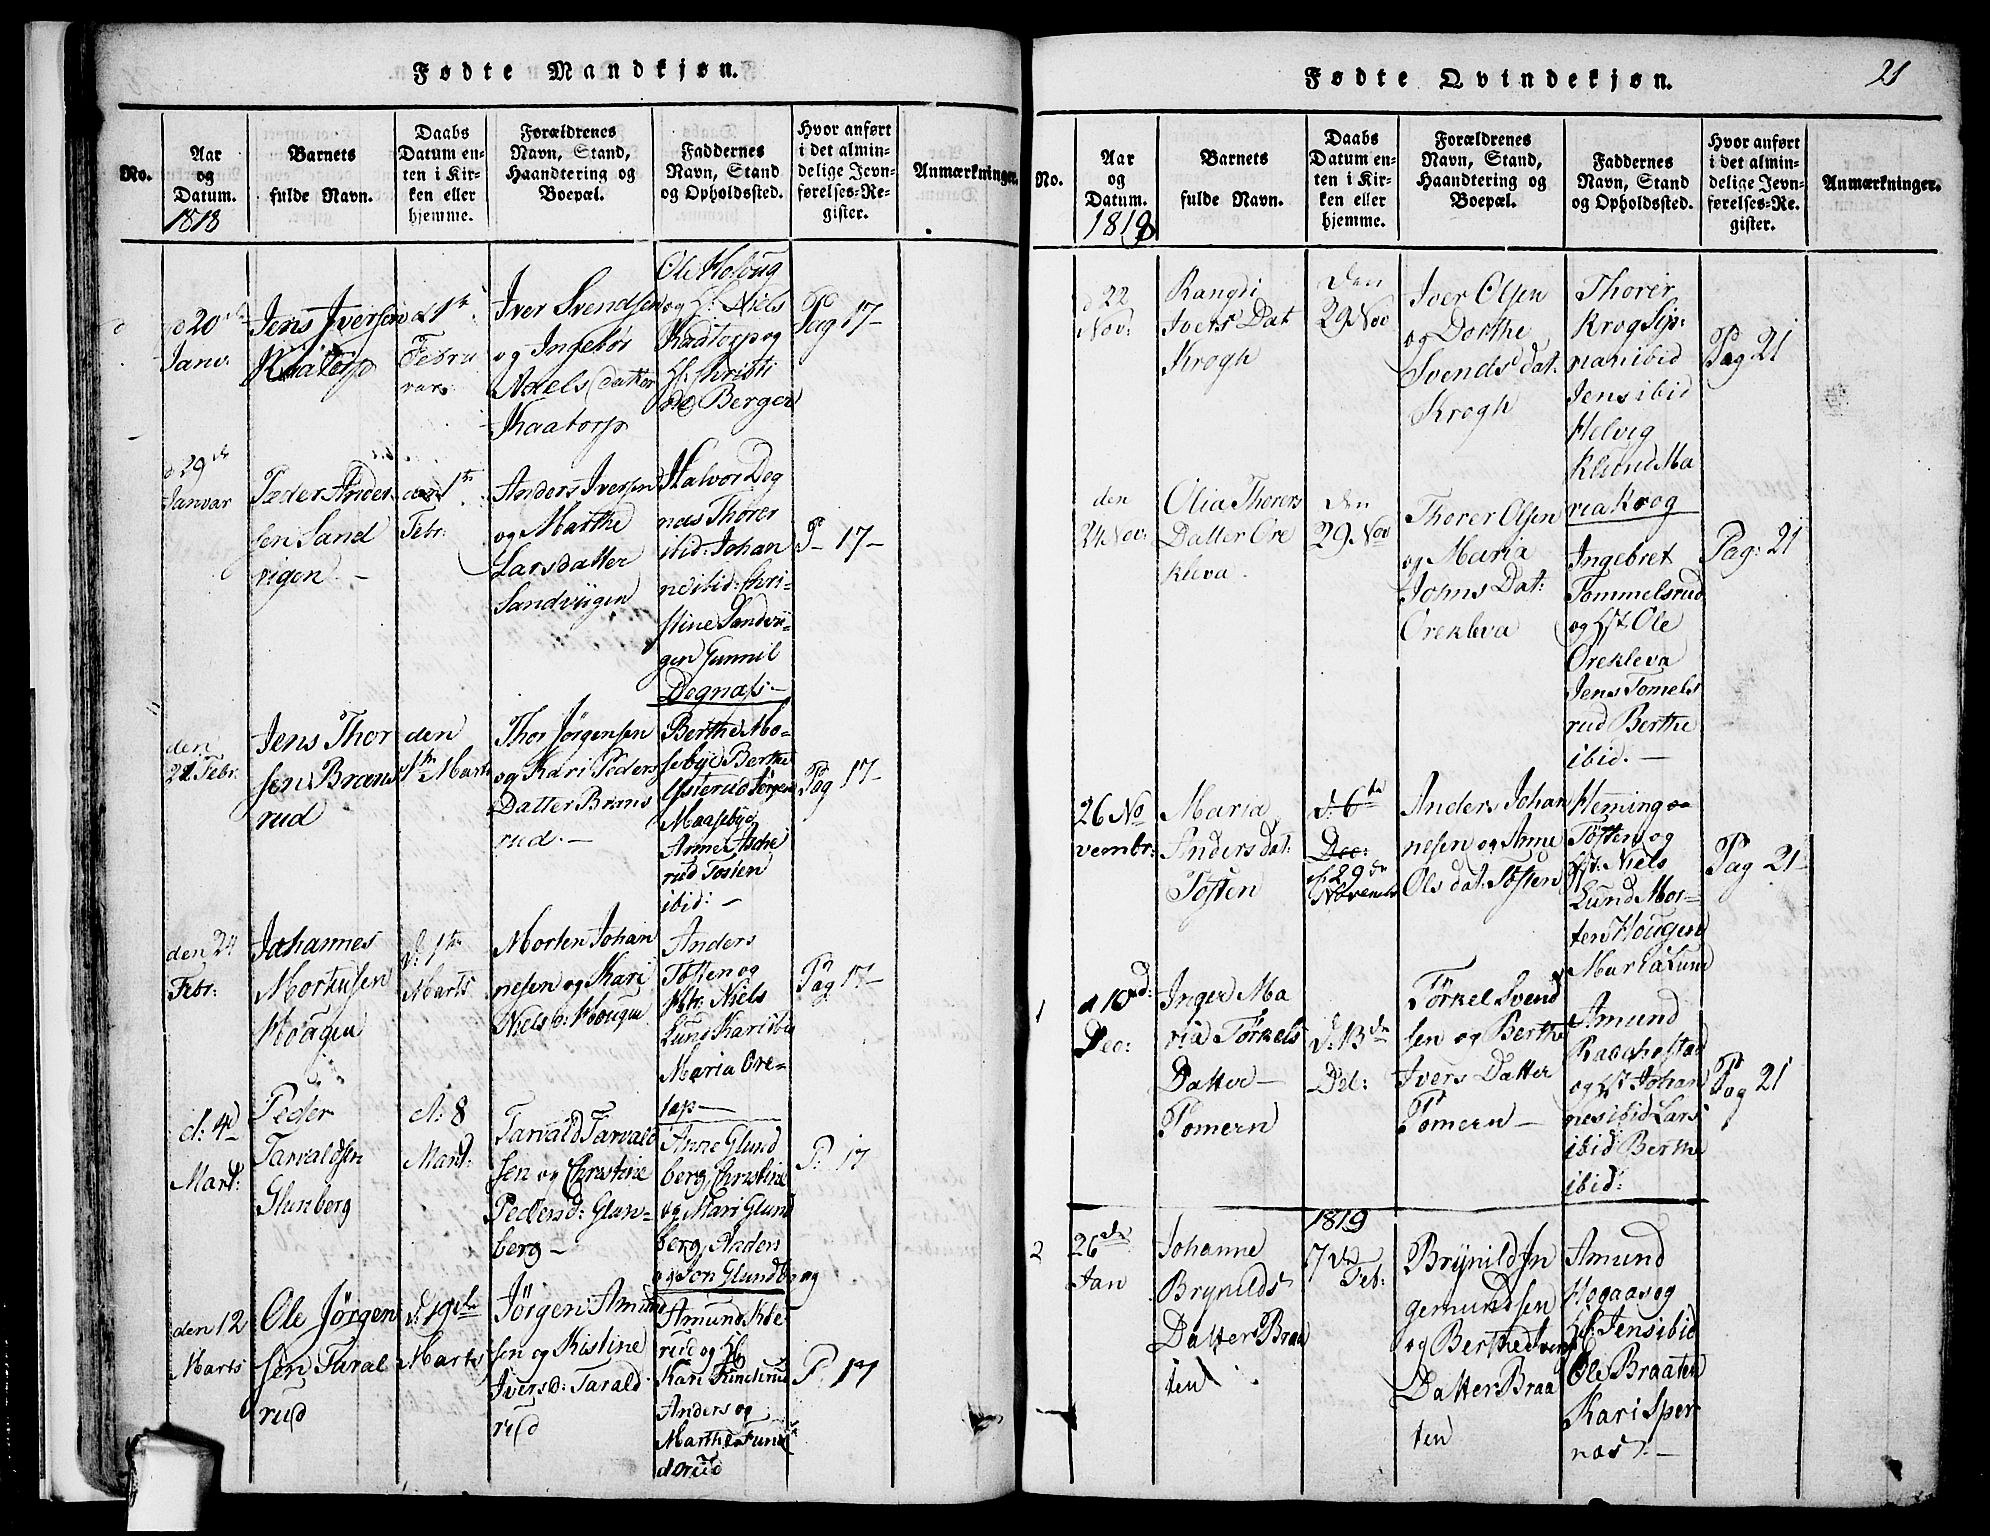 Fødte Mandkjøn.
No.
Aar
og
Datum.
1818
Barnets
fulde Navn.
Daabs
Datum en-
ten i Kir-
ken eller
hjemme.
Forældrenes
Navn, Stand,
Haandtering og
Boepæl.
Faddernes
Navn, Stand
og Opholdssted.
Hvor anført
i det almin-
delige Jevn-
førelses-Re-
gister.
Anmærkninger.
d 20de
Janv:
Jens Iversen
Kaatorp
d 1te
Febru
var
Iver Svendsen
og Ingebør
Axels datter
Kaatorp
Ole
og H: Niels
Kaatorp og
H: Christi
Berger
Pag 17-
d 29de
Januar
Peder Ander
sen Sand
vigen. -
den 1te
Febr:
Anders Iversen
og Marthe
Larsdatter
Sandviigen
Halvor Deg
næs Thorer
ibid: Johan
ne ibid: Chri-
stine Sandvii-
gen Gunnil
Degnæss-
P- 17-
den
21 Febr:
Jens Thor
sen Bræns
rud
den
1te Marts
Thor Jørgensen
og Kari Peders
Datter Bræns
rud. -
Berthe Mo-
sebye Berthe
Ysterud Jørgen
Maasebye
Anne Asche
rud Tosten
ibid: -
Pag 17-
den 24
Febr:
Johannes
Mortensen
Hougen
d: 1te
Marts
Morten Johan
nesen og Kari
Niels D: Hougen
Anders
Tosten og
Hr: Niels
Lund Kari ibid
Maria Gre-
Pag 17-
d: 4de
Mart:
Peder
Tarvaldsen
Glunberg
d: 8
Mart:
Tarvald Tarvald
sen og Christine
Pedersd: Glun-
berg -
Anne Glund
berg, Christine
og Mari Glund
berg, Anders
og Jon Glundberg
P: 17
den 12
Marts
Ole Jørgen
sen Taral
rud
d: 19de
Marts
Jørgen Amund
sen og Kistine
Iversd: Tarald
rud
Amund
rud og H:
Kari Funderud
Anders og
Marthe Fun
derud
P: 17
Fødte Qvindekjøn.
21
No.
Aar
og
Datum.
1818
Barnets
fulde Navn.
Daabs
Datum en-
ten i Kir-
ken eller
hjemme.
Forældrenes
Navn, Stand,
Haandtering og
Boepæl.
Faddernes
Navn, Stand
og Opholdssted.
Hvor anført
i det almin-
delige Jevn-
førelses-Re-
gister.
Anmærkninger.
d 22
Nov:
Rangdi
Ivers Dat
Krogh
Den
29 Nov
Iver Olsen
og Dorthe
Svends dat:
Krogh
Thorer
Krog Sip:
nan ibid
Jens ibid
Helvig
Klund Ma
ria Krog
Pag 21
den
24 Nov:
Olia Thorers
Datter Ore
kleva.
Den
29 Nov
Thorer Olsen
og Maria
Johns Dat:
Orekleva
Ingebret
Tommelsrud
og Hst. Ole
Orekleva
Jens Tomels
rud Berthe
ibid. -
Pag: 21
26 No
vembr:
Maria
Anders dat:
Tosten
d: 6te
Dec:
d: 29de
Novemb
Anders Johan
nesen og Anne
Ols dat: Tosten
Heming
Tosten og
Hst. Niels
Lund Mor-
ten Hougen
Maria Lund
Pag 21-
1
d 10de
Dec:
Inger Ma
ria Torkels
Datter -
Pomern
d: 13de
Dec:
Torkel Svend
sen og Berthe
Ivers Datter
Pomern -
Amund
og Hst Johan
nes ibid Lars
ibid Berthe
ibid:
Pag 21
2
26de
Jan
Johanne
Brynilds
Datter Braa
ten
1819
7de
Feb:
Brynild In
gemundsen
og Berthe Ivers
Datter Braa
ten
Amund
Hogaas og
H: Jens ibid
Ole Braaten
Kari Sper
næs. -